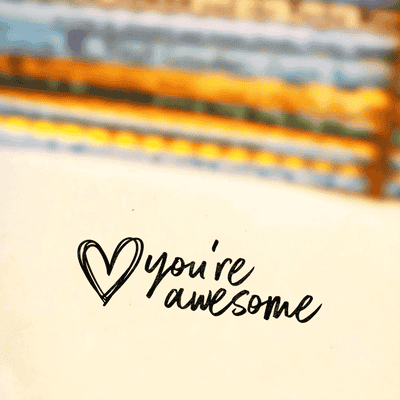 you're
awesome